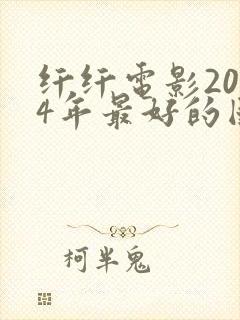 纤纤电影20
4年最好的国
柯半鬼